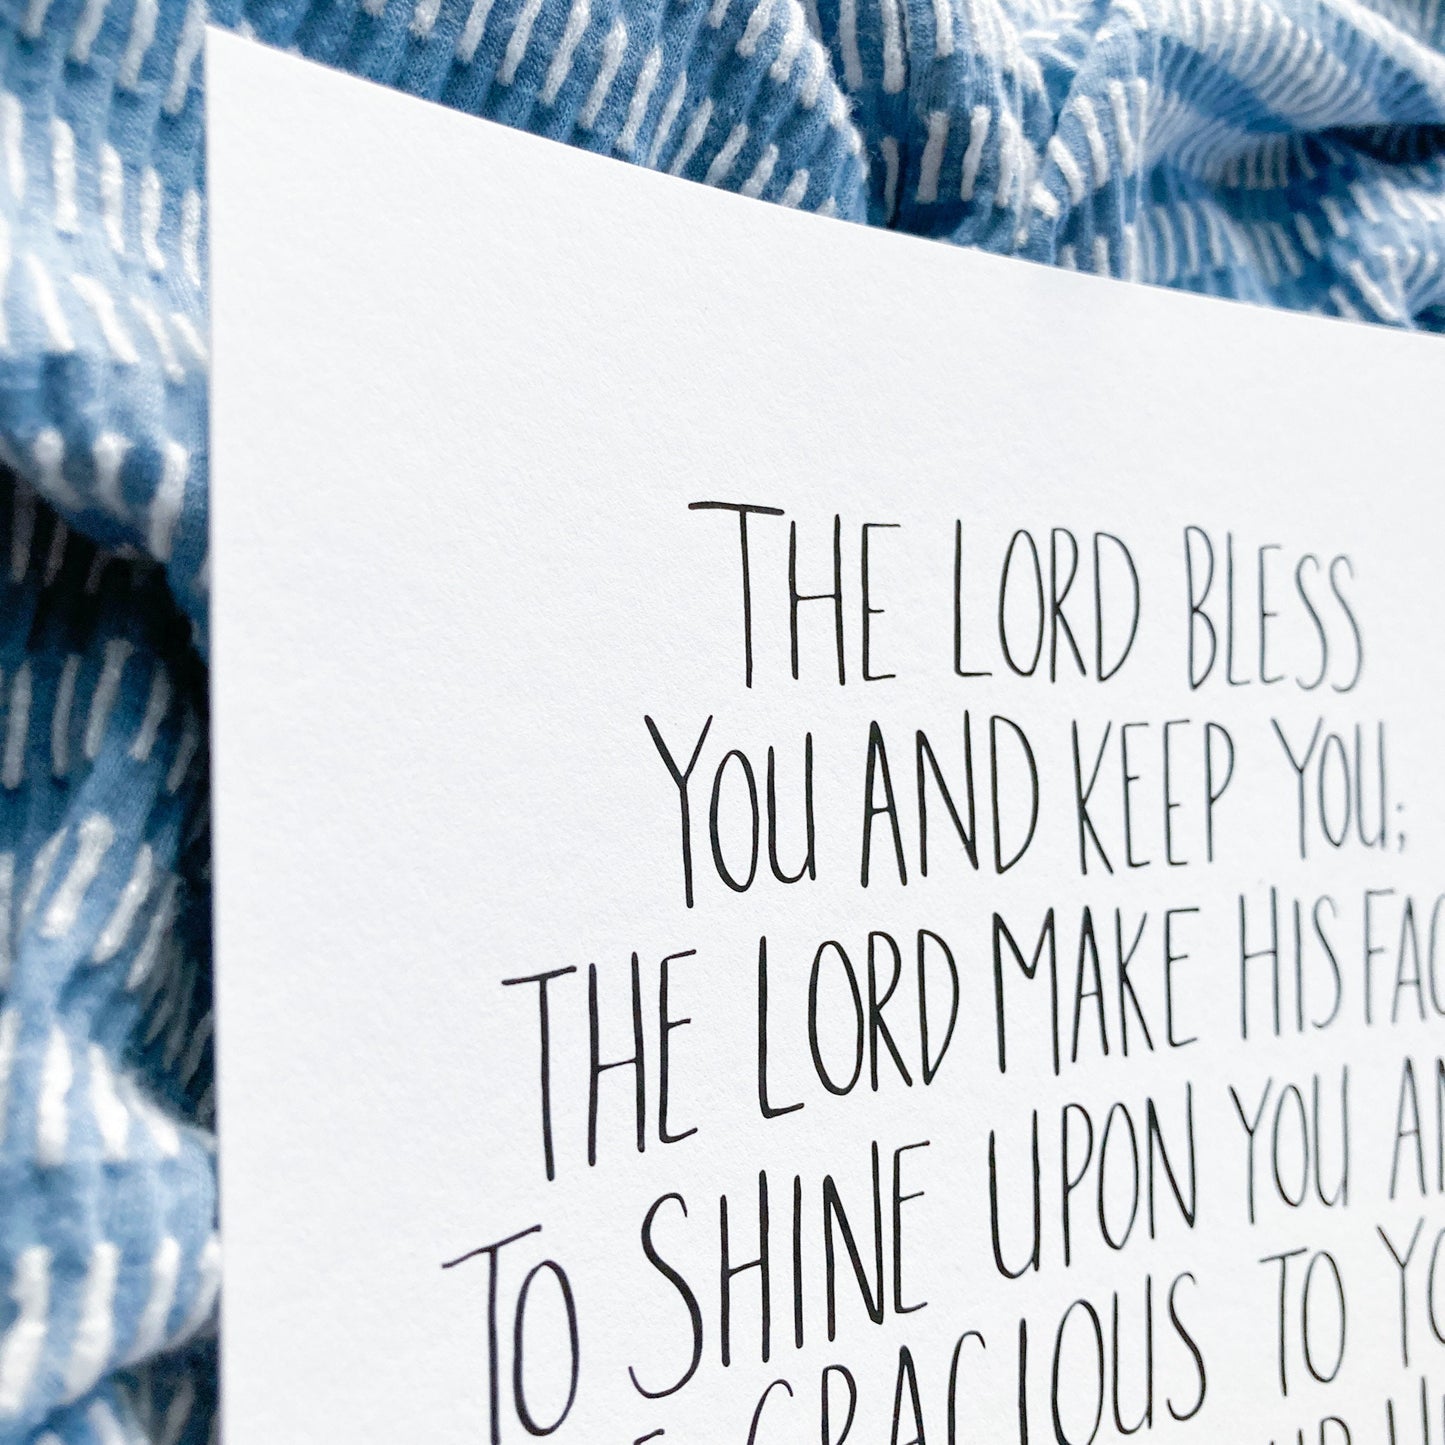 THE LORD BLESS
YOU AND KEEP YOU;
THE LORD MAKE HIS
TO SHINE UPON YOU
GRACIOUS TO